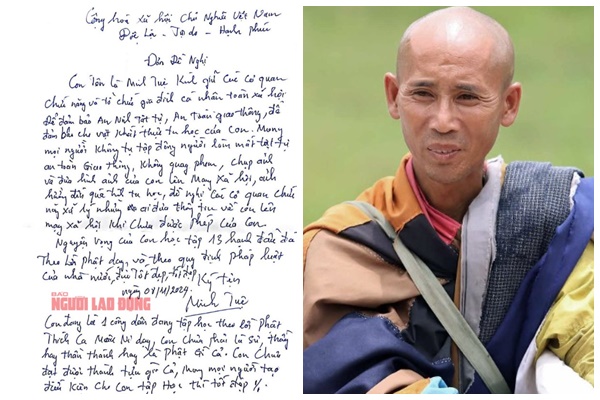 Cộng hoà xã hội Chủ Nghĩa Việt Nam
Độc Lập - Tự do - Hạnh phúc
Đơn Đề Nghị
Con tên là Minh Tuệ Kính gửi các cơ quan
Chức năng và tổ chức gia đình cá nhân toàn xã hội
để đảm bảo An Ninh Tật tự, An Toàn giao thông, để
đảm bảo cho việc thực tu học của con. Mong
mọi người Không tụ tập đông người làm mất trật tự
an toàn Giao thông, Không quay phim, chụp ảnh
và đưa hình ảnh của con lên Mạng Xã hội, ảnh
hưởng đến quá trình tu học, đề nghị Các Cơ quan chức
năng xử lý những ai đưa thông tin về con lên
mạng xã hội Khi Chưa được phép của Con
Nguyện vọng của Con học tập 13 hạnh đầu đà
Theo lời phật dạy, và theo quy định pháp luật
của nhà nước, đều tốt đẹp,
Ký tên
ngày 08/11/2024
BÁO
NGƯỜI LAO ĐỘNG
Minh Tuệ
Con đang là 1 công dân đang tập học theo lời phật
Thích Ca Mâu Ni dạy, con Chưa phải là Sư, thầy
hay thần thánh hay là phật gì cả. Con Chưa
đạt được thành tựu gì cả, mong mọi người tạo
điều Kiện cho Con tập Học thì tốt đẹp